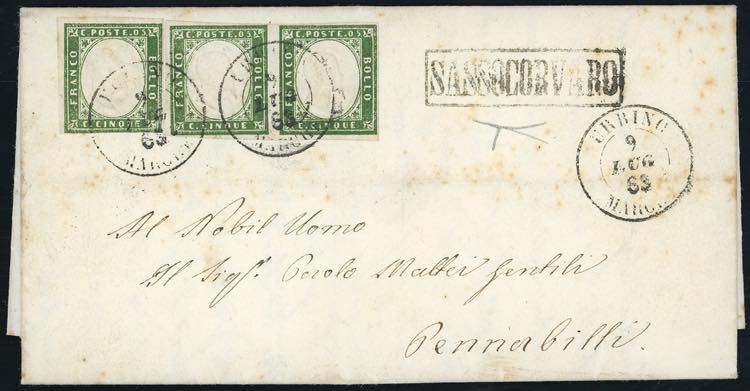 C. POSTE. 05 C. POSTE. 05 C. POSTE. 05
FRANCO BOLLO FRANCO BOLLO FRANCO BOLLO
C. CINQUE C. CINQUE C. CINQUE
63 MARCHE
9 63 MARCHE
SASSOCORVARO
URBINO
9
LUG
63
MARCHE
Al Nobil Uomo
Il Sigr. Paolo Mattei Gentili
Pennabilli.